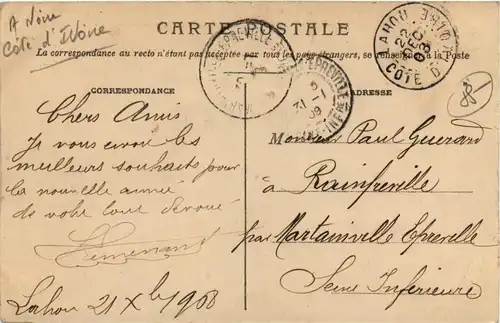 A Nöne
Côte d'Ivoire
CARTE POSTALE
La correspondance au recto n'étant pas acceptée par tous les pays étrangers, se renseigner à la Poste
CORRESPONDANCE
ADRESSE
LAHOU
CÔTE D'IVOIRE
22
DEC
EPREVILLE
31
09
Chers Amis
Je vous envoie les
meilleurs souhaits pour
la nouvelle année
de votre tout dévoué
Lahou 21 Xbre 1908
Monsieur Paul Guerard
à Rainfreville
par Martainville Epreville
Seine Inférieure